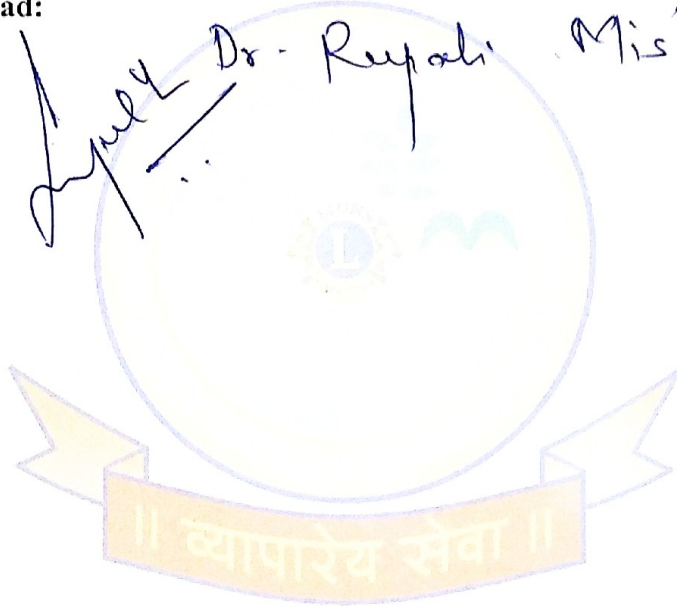 ad:
Dr. Rupali Mis
L
॥ व्यापारेय सेवा ॥